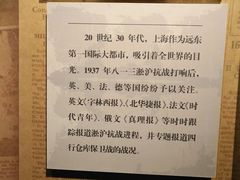 20 世纪 30 年代，上海作为远东
第一国际大都市，吸引着全世界的目
光。1937 年八一三淞沪抗战打响后，
英、美、法、德等国纷纷予以关注。
英文《字林西报》、《北华捷报》、法文《时
代青年》、俄文《真理报》等时时跟
踪报道淞沪抗战进程，并专题报道四
行仓库保卫战的战况。